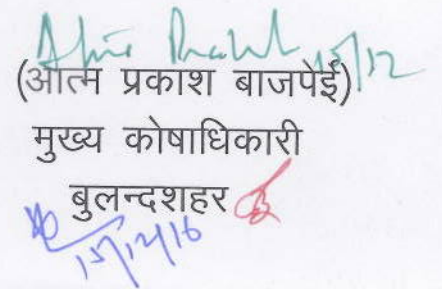 15/12
(आत्म प्रकाश बाजपेई)
मुख्य कोषाधिकारी
बुलन्दशहर
15/12/16